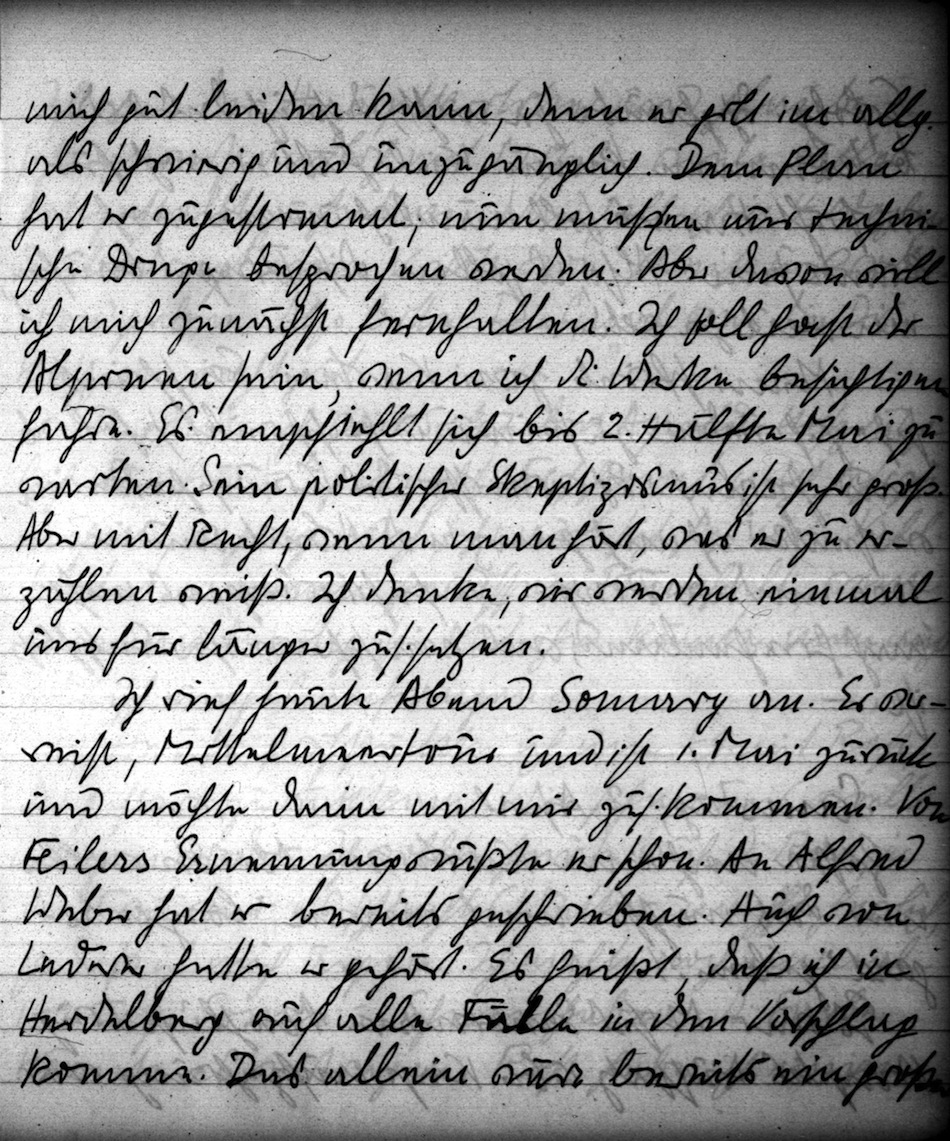 mich gut leiden kann, denn er gilt im allg.
als schwierig und unzugänglich. Dem Plan
hat er zugestimmt, nun müssen nur techni-
sche Dinge besprochen werden. Aber davon will
ich mich zunächst fernhalten. Ich soll Gast der
Alpinen sein, wenn ich die Werke besichtigen
fahre. Es empfiehlt sich bis 2. Hälfte Mai zu
warten. Sein politischer Skeptizismus ist sehr groß.
Aber mit Recht, wenn man hört, was er zu er-
zählen weiß. Ich denke, wir werden einmal
uns für länger zus.setzen.
Ich rief heute Abend Somary an. Er ver-
reist, Mittelmeertour und ist 1. Mai zurück
und möchte dann mit mir zus.kommen. Von
Feilers Ernennung wußte er schon. An Alfred
Weber hat er bereits geschrieben. Auch von
Lederer hatte er gehört. Es heißt, daß ich in
Heidelberg auf alle Fälle in den Vorschlag
komme. Das allein wäre bereits ein großer